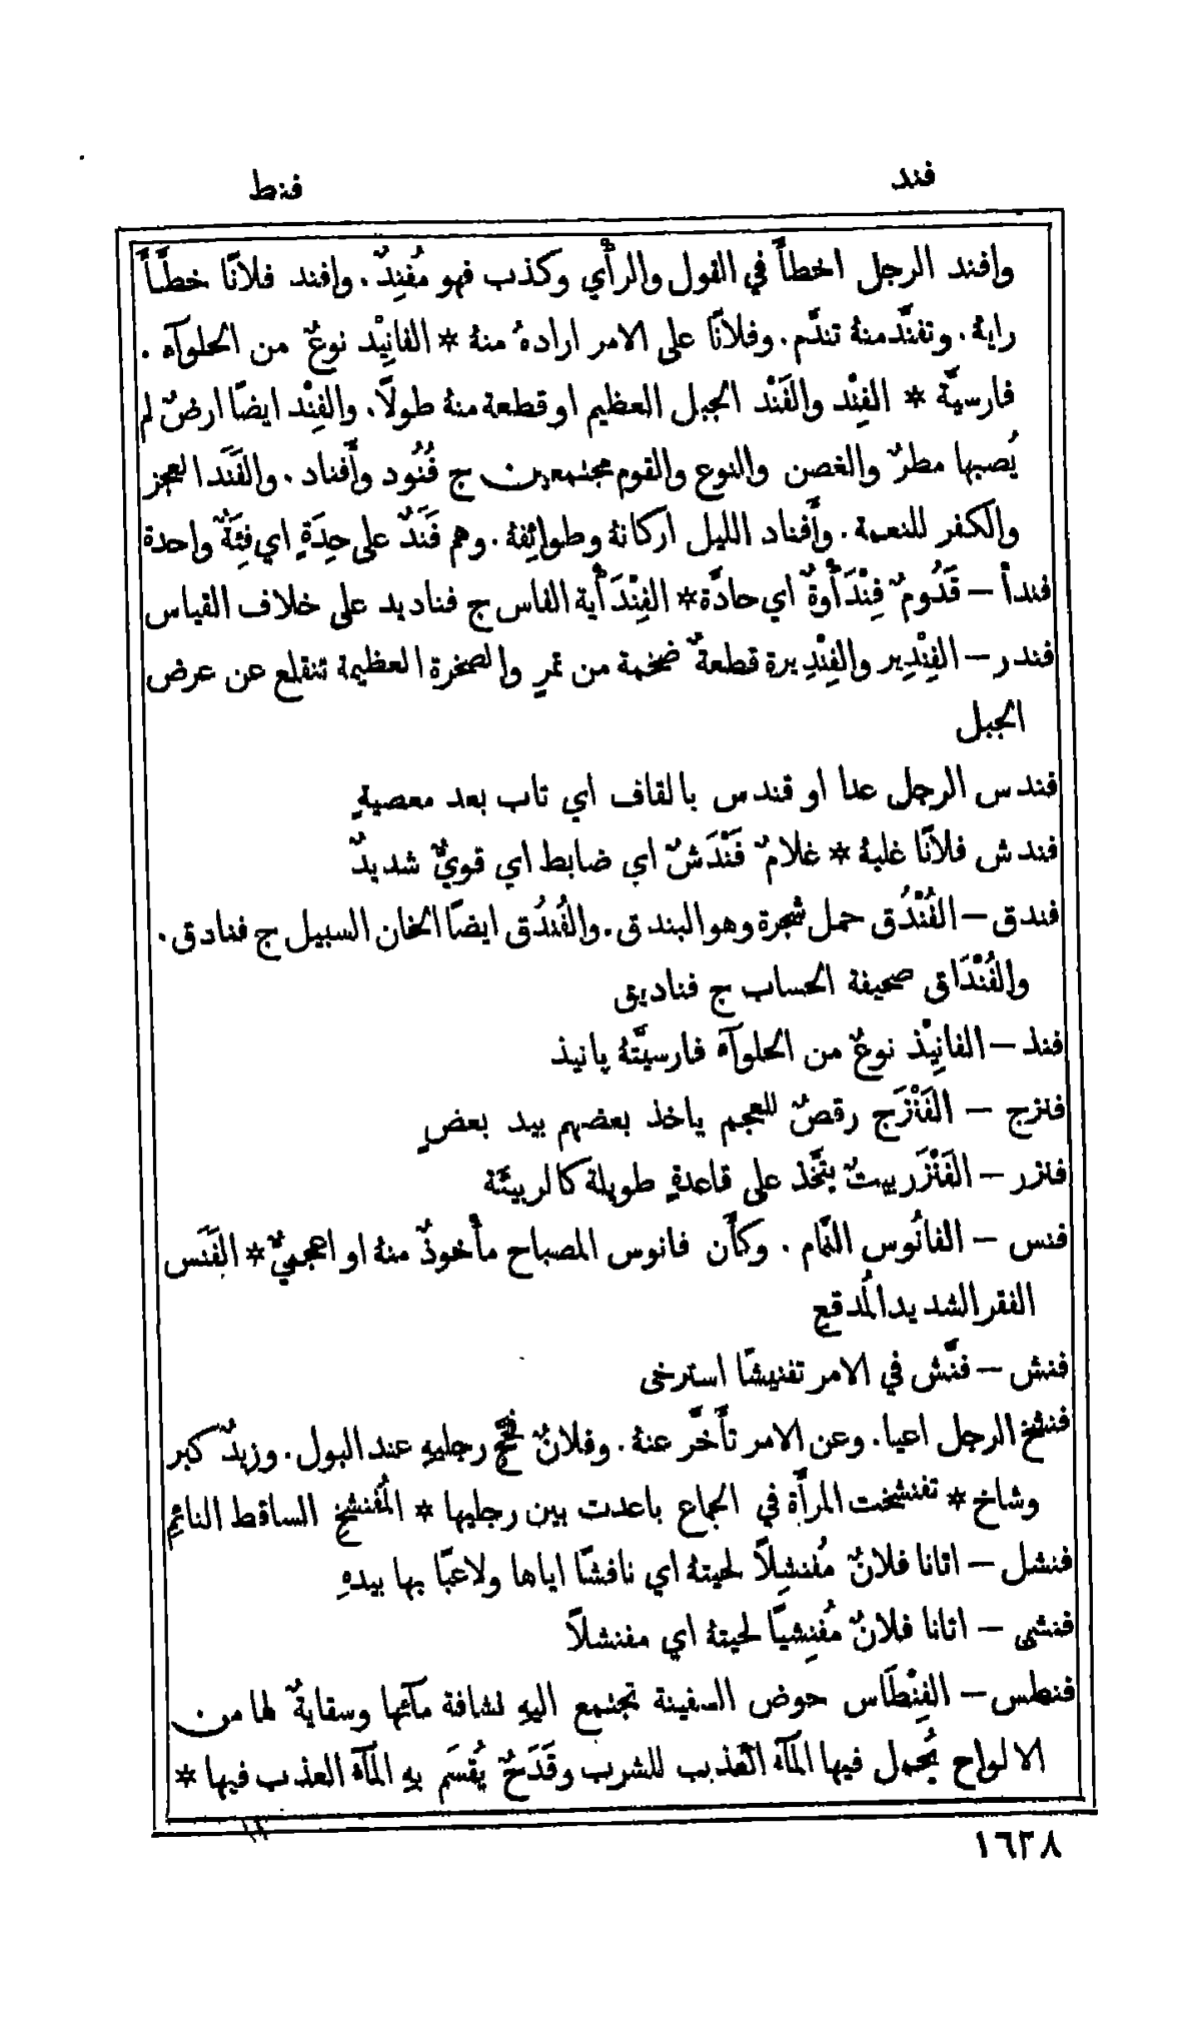 فند
فنط
وافند الرجل اخطأَ في القول والرأْي وكذب فهو مُفنِدٌ. وافند فلانًا خطَّأَ
رايهُ. وتفنَّد منهُ تندَّم. وفلانًا على الامر ارادهُ منهُ * الفانِيْد نوعٌ من الحلوآء .
فارسيَّة * الفِنْد والفَنْد الجبل العظيم او قطعة منهُ طولاً. والفِنْد ايضًا ارضٌ لم
يُصبها مطرٌ والغصن والنوع والقوم مجتمعين ج فُنُود وأَفناد . والفَنَد العجز
والكفر للنعمة . وأَفناد الليل اركانهُ وطوائِفهُ . وهم فَنَدٌ على حِدَةٍ اي فِئَةٌ واحدة
فندأ – قَدُومٌ فِنْدَأْوةٌ اي حادَّة * الفِنْدَأْية الفاس ج فناديد على خلاف القياس
فندر – الفِنْدِير والفِنْدِيرة قطعةٌ ضخمة من تمرٍ والصخرة العظيمة تنقلع عن عرض
الجبل
فندس الرجل عدا او قندس بالقاف اي تاب بعد معصيةٍ
فندش فلانًا غلبهُ * غلامٌ فَنْدَشٌ اي ضابط اي قويٌّ شديدٌ
فندق – الفُنْدُق حمل شجرة وهو البندق . والفُندُق ايضًا الخان السبيل ج فنادق .
والفُنْدَاق صحيفة الحساب ج فناديق
فنذ – الفانِيْذ نوعٌ من الحلوآء فارسيَّتهُ پانيذ
فنزج – الفَنْزَج رقصٌ للعجم ياخذ بعضهم بيد بعضٍ
فنزر – الفَنْزَر بيتٌ يتَّخذ على قاعدةٍ طويلة كالربيئة
فنس – الفانُوس النمَّام . وكأَن فانوس المصباح مأْخوذٌ منهُ او اعجميٌّ * الفَنَس
الفقر الشديد المُدقع
فنش – فنَّش في الامر تفنيشًا استرخى
فنشخ الرجل اعيا. وعن الامر تأَخَّر عنهُ . وفلانٌ فحَّج رجليهِ عند البول . وزيدٌ كبر
وشاخ * تفنشخت المرأَة في الجماع باعدت بين رجليها * المُفنشخ الساقط النائم
فنشل – اتانا فلانٌ مُفنشِلاً لحيتهُ اي نافشًا اياها ولاعبًا بها بيدهِ
فنشى – اتانا فلانٌ مُفنِشيًا لحيتهُ اي مفنشلاً
فنطس – الفِنْطَاس حوض السفينة تجتمع اليهِ نشافة مآئها وسقايةٌ لها من
الالواح يُحمل فيها المآء العذب للشرب وقَدَحٌ يُقسَم بهِ المآء العذب فيها *
١٦٣٨